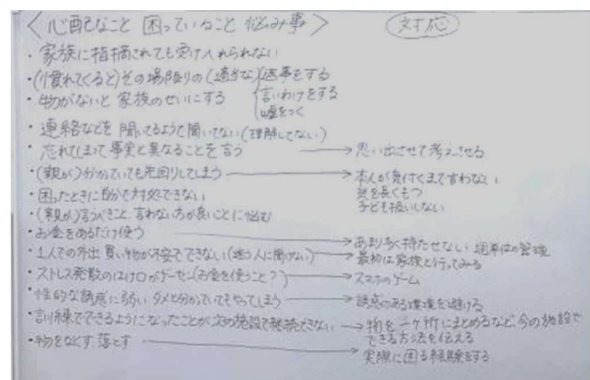 〈心配なこと 困っていること 悩み事〉 対応
・家族に指摘されても受け入れられない
・(慣れてくると)その場限りの(適当な)返事をする
・物がないと家族のせいにする 言いわけをする
嘘をつく
・連絡などを聞いてるようで聞いてない(理解してない)
・忘れてしまって事実と異なることを言う → 思い出させて考えさせる
・(親が)分かっていても先回りしてしまう → 本人が気付くまで言わない
・困ったときに自分で対処できない 気を長くもつ
・(親が)言うべきこと、言わない方が良いことに悩む 子ども扱いしない
・お金をあるだけ使う → あまり多く持たせない 週単位の管理
・1人での外出 買い物が不安でできない(違う人に聞けない) → 最初は家族と行ってみる
・ストレス発散のはけ口がゲーセン(お金を使うこと?) → スマホのゲーム
・性的な誘惑に弱い ダメと分かっていてもやってしまう → 誘惑のある環境を避ける
・訓練でできるようになったことが次の施設で継続できない → 物を一ヶ所にまとめるなど、今の施設で
できる方法を伝える
・物をなくす 落とす → 実際に困る経験をする